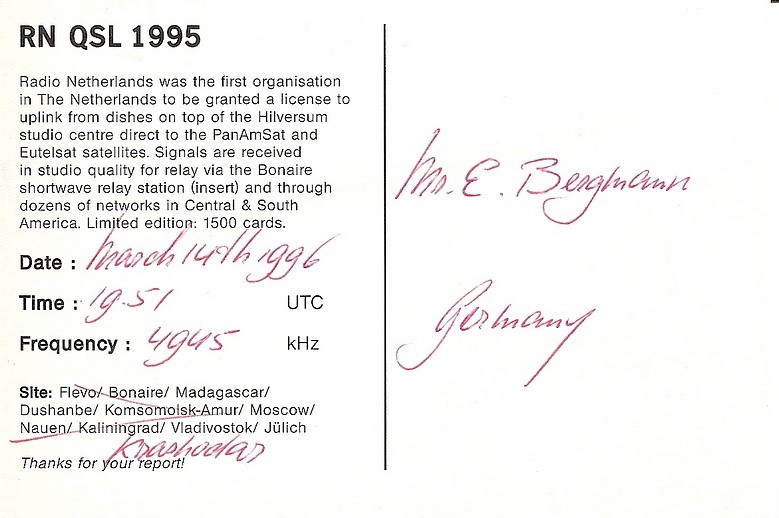 RN QSL 1995
Radio Netherlands was the first organisation
in The Netherlands to be granted a license to
uplink from dishes on top of the Hilversum
studio centre direct to the PanAmSat and
Eutelsat satellites. Signals are received
in studio quality for relay via the Bonaire
shortwave relay station (insert) and through
dozens of networks in Central & South
America. Limited edition: 1500 cards.
Date : March 14th 1996
Time : 19.51 UTC
Frequency : 4945 kHz
Site: Flevo/ Bonaire/ Madagascar/
Dushanbe/ Komsomolsk-Amur/ Moscow/
Nauen/ Kaliningrad/ Vladivostok/ Jülich
Krashodar
Thanks for your report!
Mr. E. Bergmann
Germany